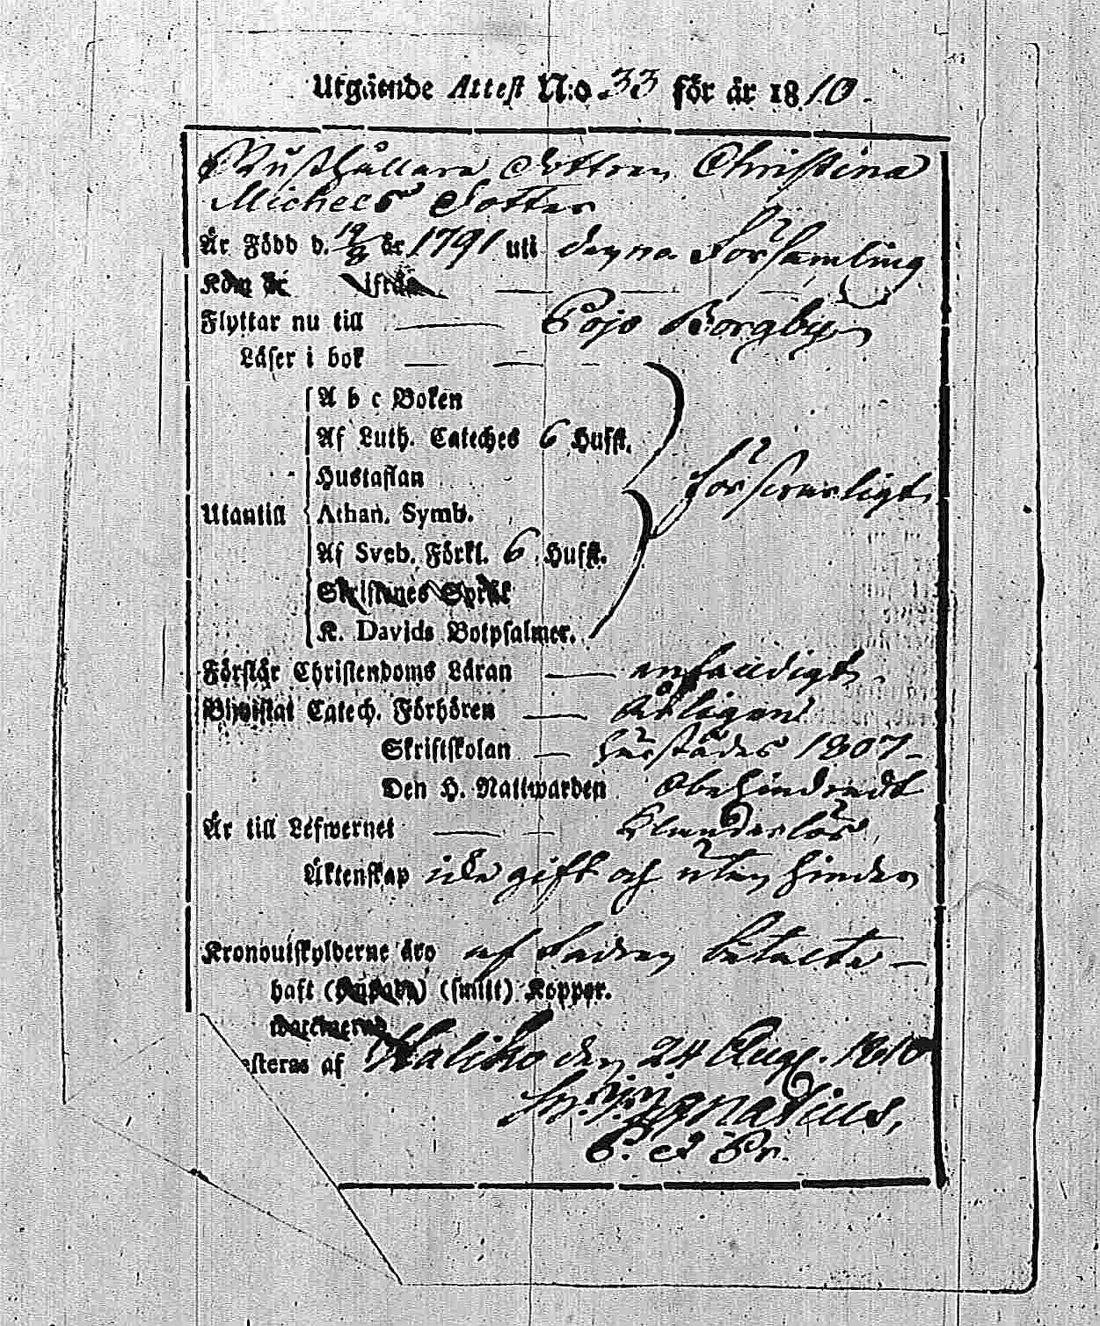 Utgående Attest N:o 33 för år 1810.
Rusthållare Dottren Christina
Michels Dotter
Är Född d. 19/8 år 1791 uti denna Församling
Kom år ifrån
Flyttar nu till Pojo Borgby
Läser i bok
A b c Boken
Af Luth. Cateches 6 Hufst.
Hustaflan
Utantill Athan. Symb. försvarligt
Af Sveb. Förkl. 6 Hufst.
Skriftenes Språk
K. Davids Botpsalmer.
Förstår Christendoms Läran enfaldigt.
Bijvistat Catech. Förhören årligen
Skriftskolan härstädes 1807
Den H. Nattwarden obehindradt
Är till Lefwernet klanderlös
Äktenskap icke gift och utan hinder
Kronoutskylderne äro af Fadren betalte
haft () (smitt) Koppor.
esteras af Haliko den 24 Aug. 1810
Ignatius,
P. et Pr.